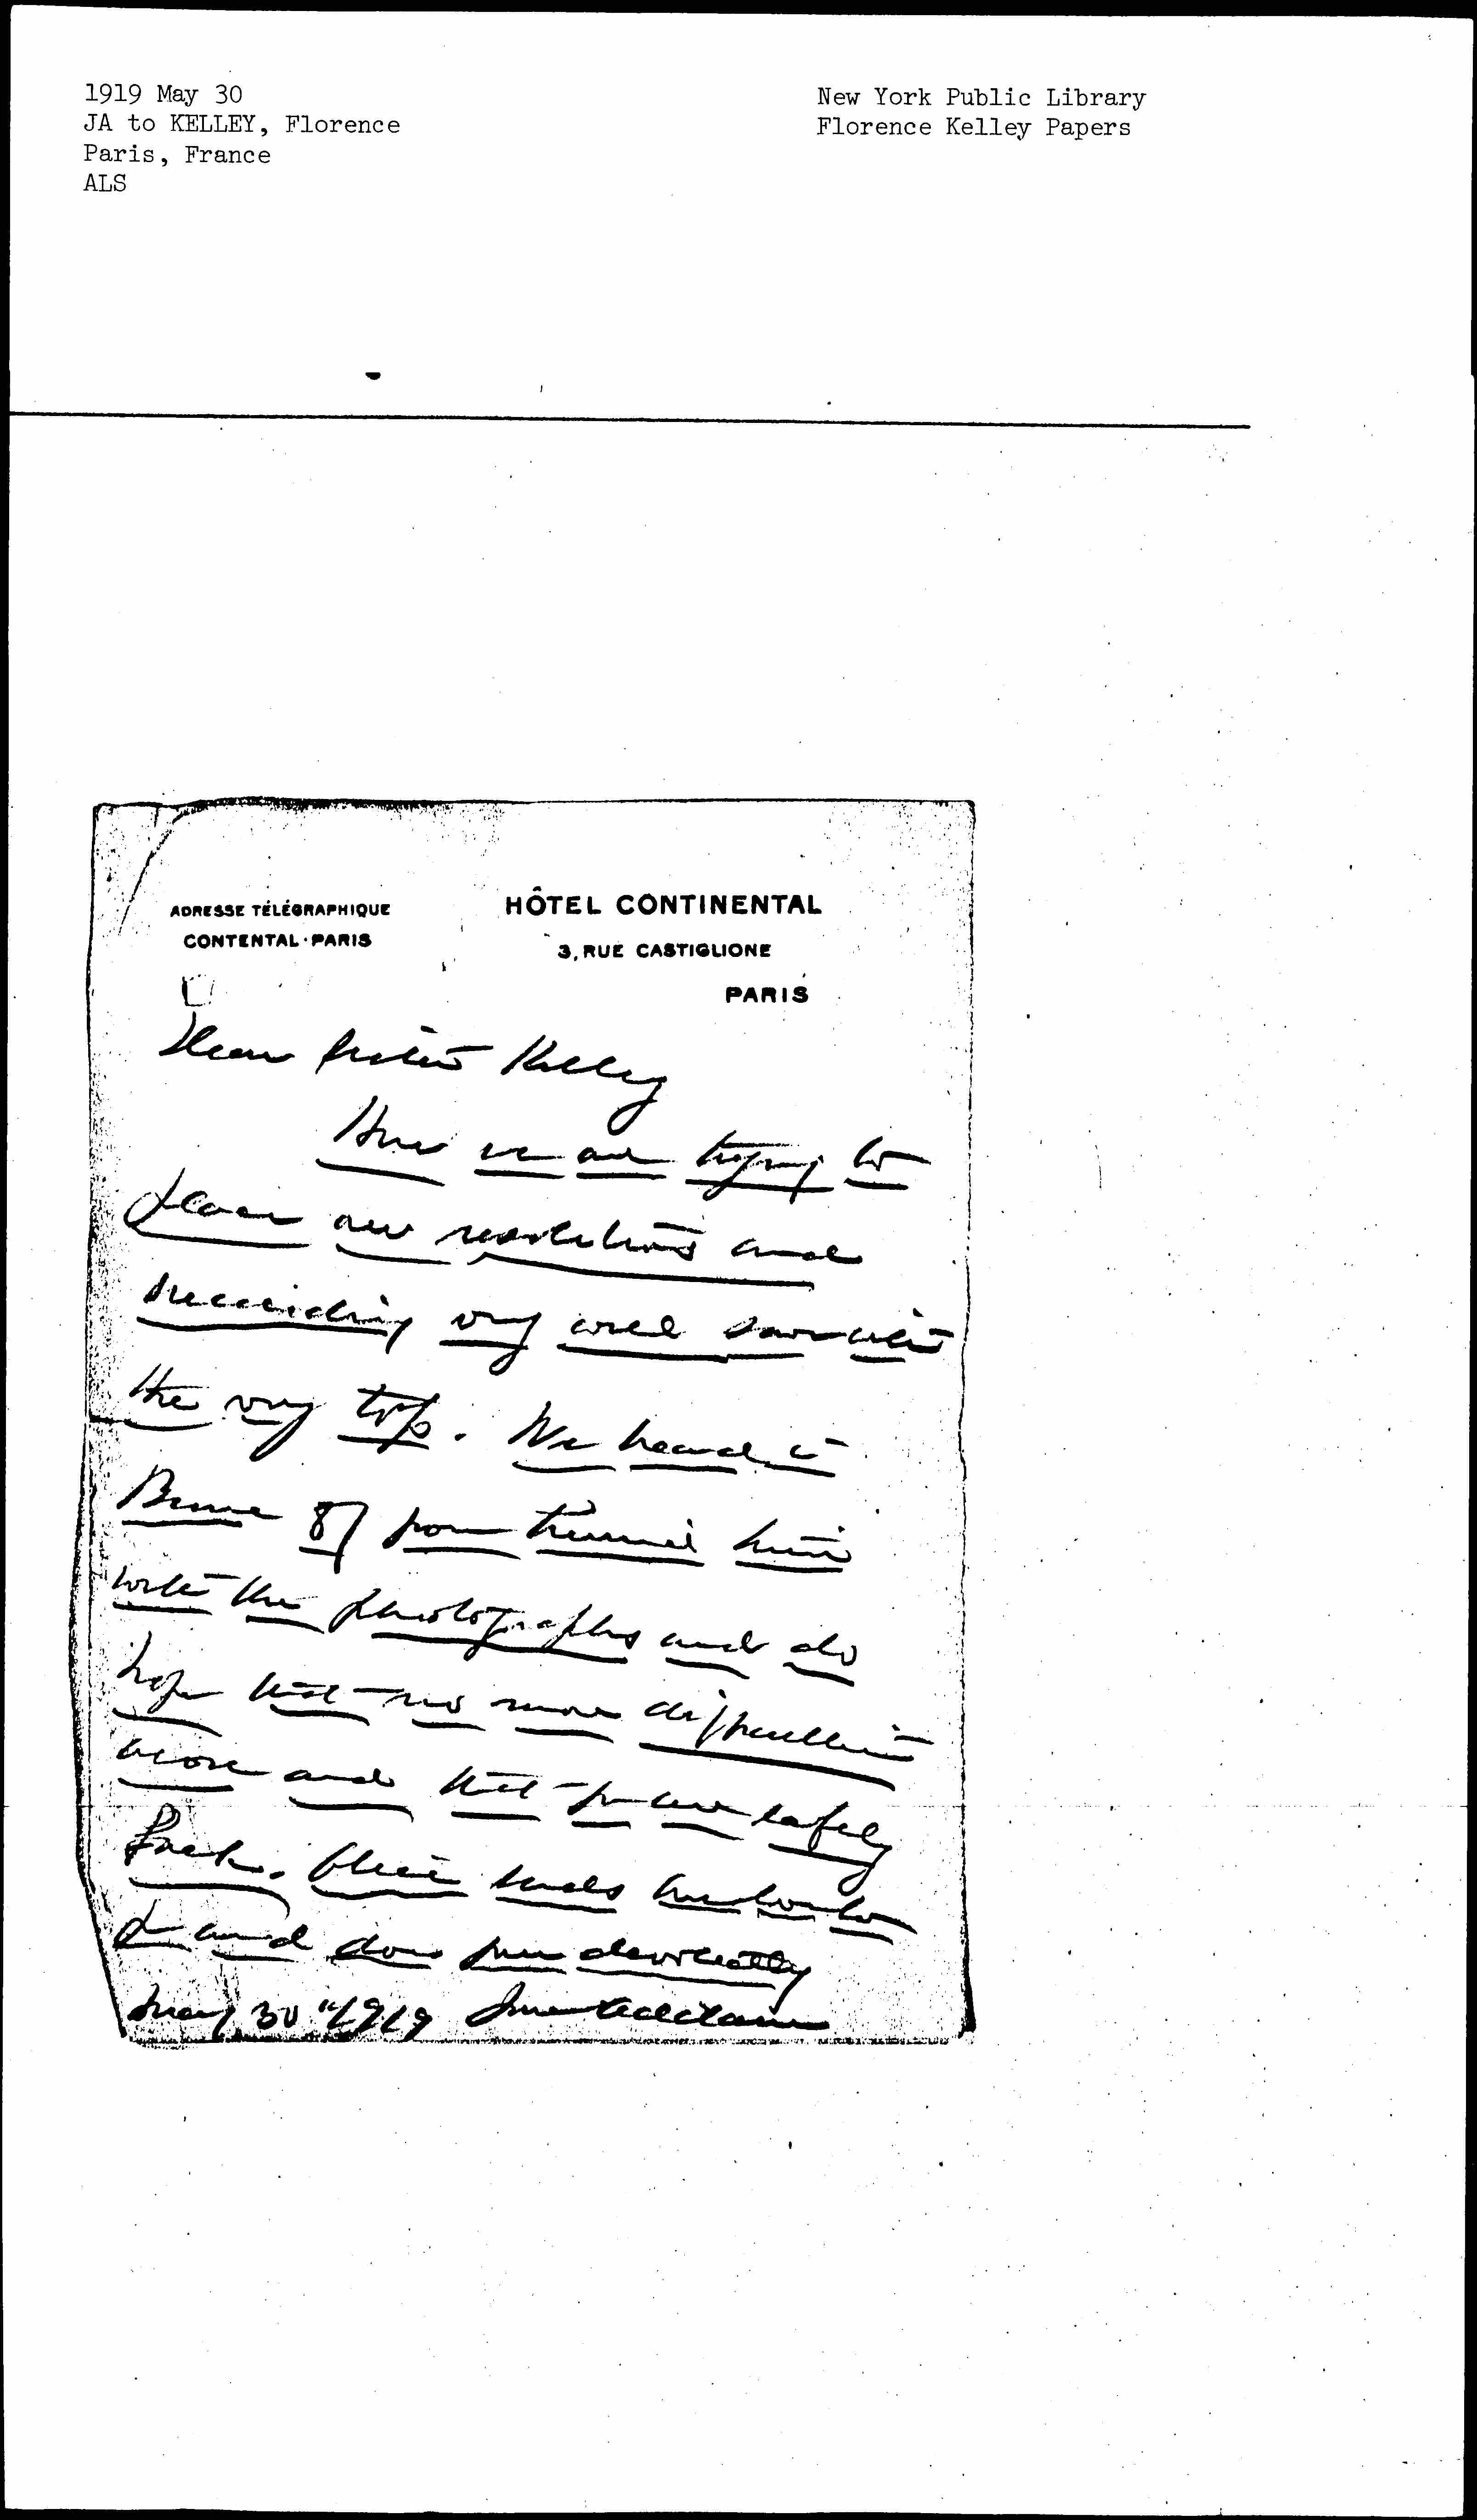 1919 May 30
JA to KELLEY, Florence
Paris, France
ALS
New York Public Library
Florence Kelley Papers
ADRESSE TÉLÉGRAPHIQUE
CONTENTAL·PARIS
HÔTEL CONTINENTAL
3, RUE CASTIGLIONE
PARIS
Dear Sister Kelley
Here we are trying to
place our resolutions and
succeeding very well save with
the very top. We heard in
Berne of your his
with the photographs and do
hope that no more difficulties
arose and that you are safely
back. Alice sends her love to
and does devotedly
May 30" 1919 Jane Addams